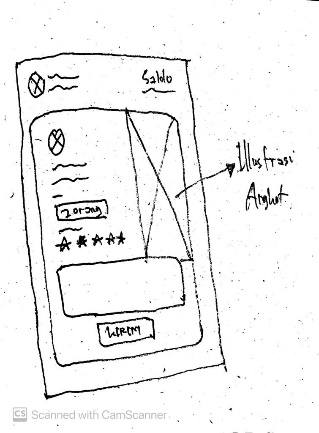 Saldo
2 orang
Illustrasi
Angkot
KIRIM
CS Scanned with CamScanner